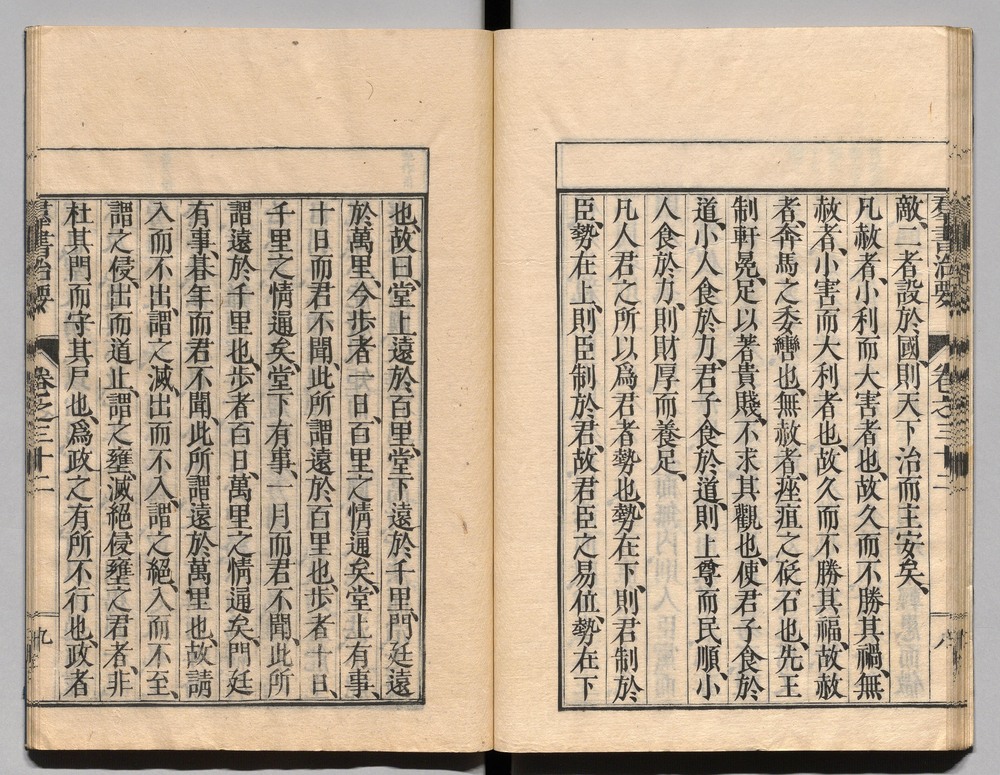 羣書治要 卷之三十二 八
敵、二者設於國則天下治而主安矣、
凡赦者、小利而大害者也、故久而不勝其禍、無
赦者、小害而大利者也、故久而不勝其福、故赦
者、奔馬之委轡也、無赦者、痤疽之砭石也、先王
制軒冕、足以著貴賤、不求其觀也、使君子食於
道、小人食於力、君子食於道、則上尊而民順、小
人食於力、則財厚而養足、
凡人君之所以爲君者勢也、勢在下、則君制於
臣、勢在上、則臣制於君、故君臣之易位、勢在下
也、故曰、堂上遠於百里、堂下遠於千里、門廷遠
於萬里、今步者一日、百里之情通矣、堂上有事、
十日而君不聞、此所謂遠於百里也、步者十日、
千里之情通矣、堂下有事、一月而君不聞、此所
謂遠於千里也、步者百日、萬里之情通矣、門廷
有事、朞年而君不聞、此所謂遠於萬里也、故請
入而不出、謂之滅、出而不入、謂之絕、入而不至、
謂之侵、出而道止、謂之壅、滅絕侵壅之君者、非
杜其門而守其戶也、爲政之有所不行也、政者
羣書治要 卷之三十二 九